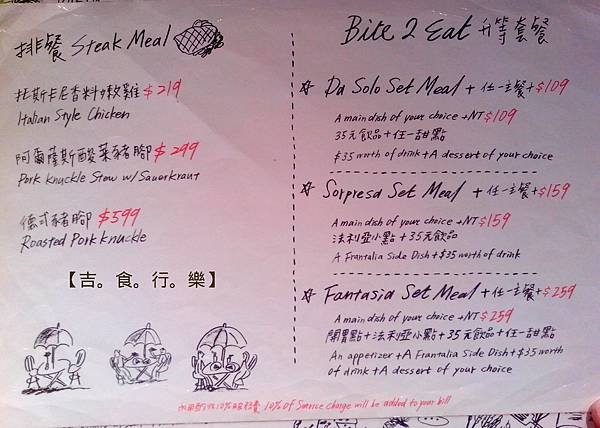 排餐 Steak Meal
托斯卡尼香料嫩雞 $219
Italian Style Chicken
阿爾薩斯酸菜豬腳 $299
Pork Knuckle Stew w/ Sauerkraut
德式豬腳 $599
Roasted Pork Knuckle
【吉。食。行。樂】
Bite 2 Eat 升等套餐
Da Solo Set Meal + 任一主餐 + $109
A main dish of your choice + NT $109
35元飲品 + 任一甜點
$35 worth of drink + A dessert of your choice
Sorpresa Set Meal + 任一主餐 + $159
A main dish of your choice + NT $159
法利亞小點 + 35元飲品
A Frantalia Side Dish + $35 worth of drink
Fantasia Set Meal + 任一主餐 + $259
A main dish of your choice + NT $259
開胃點 + 法利亞小點 + 35元飲品 + 任一甜點
An appetizer + A Frantalia Side Dish + $35 worth
of drink + A dessert of your choice
內用酌收10%服務費 10% of Service charge will be added to your bill